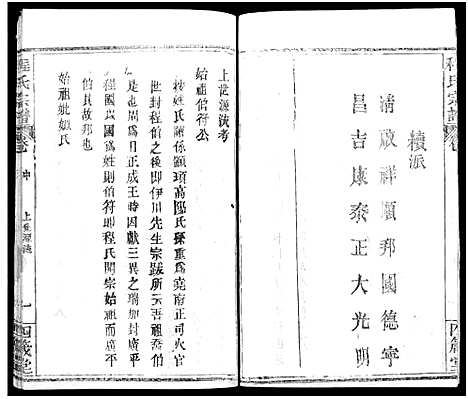 程氏宗譜
續派
清啟祥順邦國德寧
昌吉康泰正大光明
四箴堂
上世源流考
始祖伯符公
按姓氏譜係顓頊高陽氏孫重為堯南正司火官
世封程伯之後即伊川先生宗跋所云吾祖喬伯
是也周為日正成王時因獻三異之瑞加封廣平
程國以國為姓則伯符即程氏開宗始祖而廣平
伯其故邦也
始祖妣姬氏
程氏宗譜
卷
中
上世源流
一
四箴堂